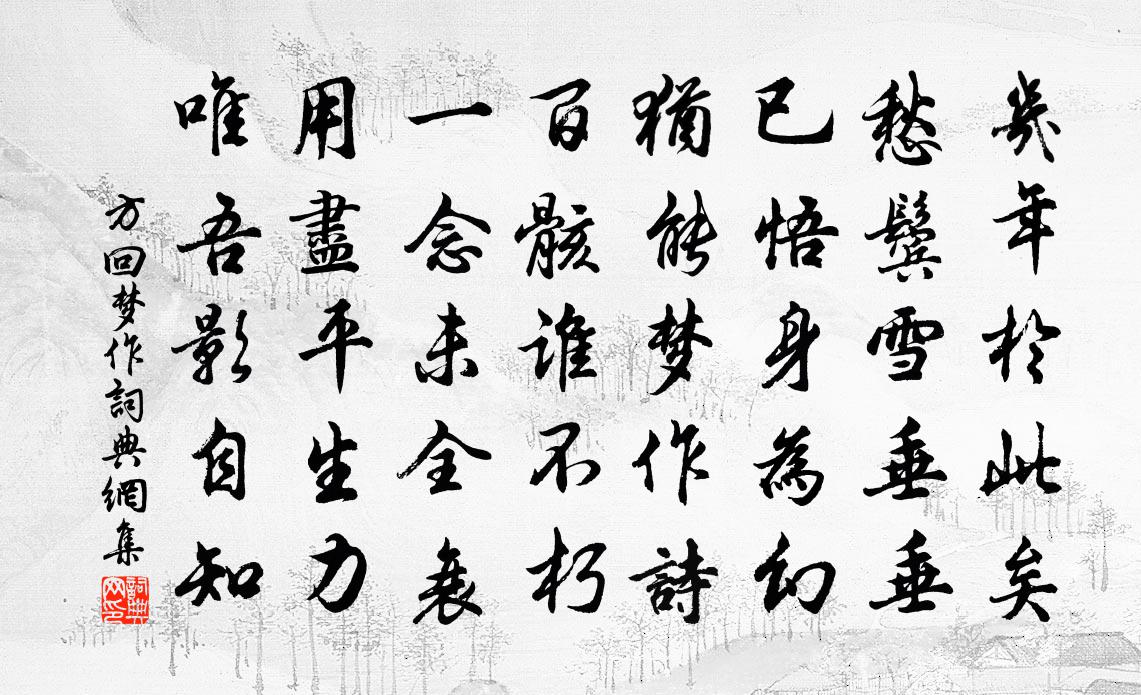 幾年於此矣
愁鬢雪垂垂
已悟身為幻
猶能梦作詩
百骸谁不朽
一念未全衰
用盡平生力
唯吾影自知
方回梦作詞典網集
詞典网印